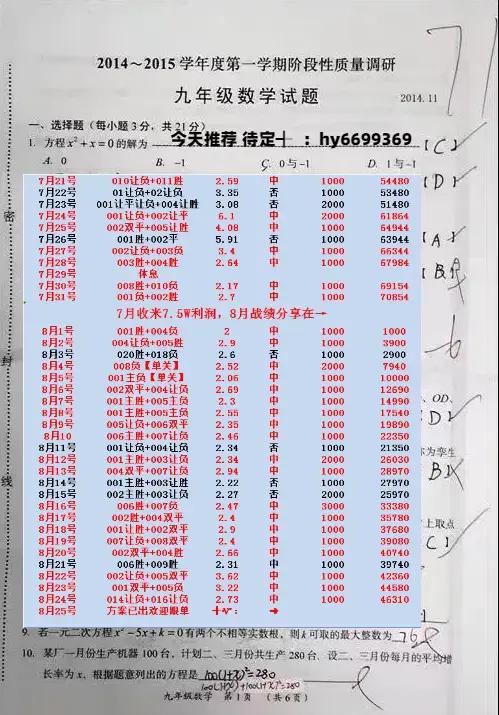 2014～2015 学年度第一学期阶段性质量调研
九年级数学试题 2014.11
一、选择题（每小题 3 分，共 21 分）
今天推荐 待定╂ ：hy6699369
1. 方程 x²+x=0 的解为 【C】
A. 0 B. -1 C. 0 与 -1 D. 1 与 -1
7月21号 010让负+011胜 2.59 中 1000 54480
7月22号 01让负+02让负 3.35 否 1000 53480
7月23号 001让平让负+004让胜 3.08 否 2000 51480
7月24号 001让负+002让平 6.1 中 2000 61864
7月25号 002双平+005让胜 4.08 中 1000 64944
7月26号 001胜+002平 5.91 否 1000 63944
7月27号 002让负+003负 3.4 中 1000 66344
7月28号 003胜+004胜 2.64 中 1000 67984
7月29号 体息
7月30号 008胜+010负 2.17 中 1000 69154
7月31号 001负+002胜 2.7 中 1000 70854
7月收来7.5W利润，8月战绩分享在→
8月1号 001胜+004负 2 中 1000 1000
8月2号 004让负+005胜 2.9 中 1000 3900
8月3号 020胜+018负 2.6 否 1000 2900
8月4号 008负【单关】 2.52 中 2000 7940
8月5号 001主负【单关】 2.06 中 1000 10000
8月6号 002双平+004让负 2.69 中 1000 12690
8月7号 001主胜+005主负 2.3 中 1000 14990
8月8号 001主胜+005主负 2.55 中 1000 17540
8月9号 005让负+006双平 2.35 中 1000 19890
8月10 006主胜+007让负 2.46 中 1000 22350
8月11号 001让负+004让负 2.34 否 1000 21350
8月12号 001主胜+003让负 2.34 中 2000 26030
8月13号 004双平+007让负 2.94 中 1000 28970
8月14号 001主胜+003让胜 2.22 否 1000 27970
8月15号 002主胜+003让负 2.27 否 2000 25970
8月16号 006胜+007负 2.47 中 3000 33380
8月17号 002胜+004双平 2.4 中 1000 35780
8月18号 001让胜+002双平 2.9 中 1000 37680
8月19号 007让负+008双平 2.4 中 1000 39080
8月20号 002双平+004胜 2.66 中 1000 40740
8月21号 006胜+009胜 2.31 中 1000 39740
8月22号 002让负+005双平 3.62 中 1000 42360
8月23号 001双平+005负 3.22 中 1000 44580
8月24号 014让负+016让负 2.73 中 1000 46310
8月25号 方案已出欢迎跟单 ╂V： →
【D】
【A】
【B】
、OD、
【D】
为孪生
B】
上取点
【C】
密
封
线
9. 若一元二次方程 x²-5x+k=0 有两个不相等实数根，则 k 可取的最大整数为
10. 某厂一月份生产机器 100 台，计划二、三月份共生产 280 台．设二、三月份每月的平均增
长率为 x，根据题意列出的方程是 100(1+x)²=280
100(1+x)+100(1+x)²=280
九年级数学 第 1 页 （共 6 页）